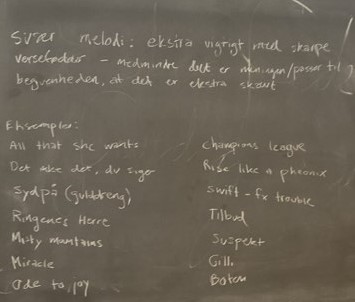 Svær melodi: ekstra vigtigt med skarpe
versefødder – medmindre det er meningen/passer til
begivenheden, at det er ekstra skævt
Eksempler:
All that she wants
Det det, du siger
Sydpå (gulddreng)
Ringenes Herre
Misty mountains
Miracle
Ode to joy
Champions league
Rise like a phoenix
Swift - fx trouble
Tilbud
Suspekt
Gilli